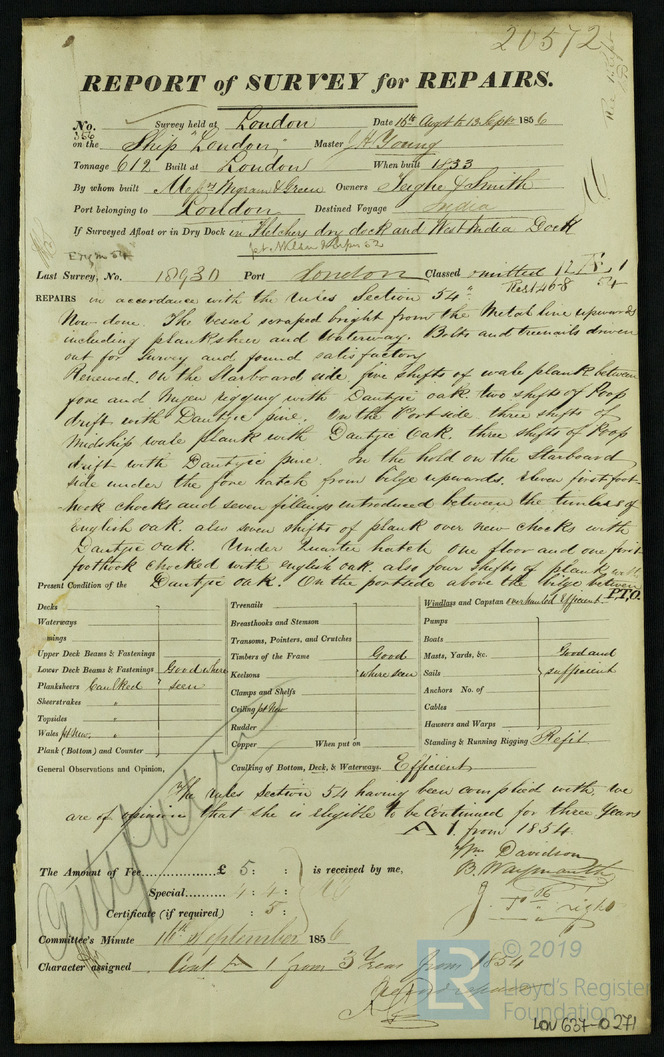 20572
REPORT of SURVEY for REPAIRS.
No. Survey held at London Date 16th Augt to 13 Sept 1856
on the Ship "London" Master J H Young
Tonnage 612 Built at London When built 1833
By whom built Messrs Wigram & Green Owners Teighe & Smith
Port belonging to London Destined Voyage India
If Surveyed Afloat or in Dry Dock in Fletchers dry dock and West India Dock
Last Survey, No. 18930 Port London Classed omitted
REPAIRS in accordance with the rules Section 54"
Now done. The Vessel scraped bright from the Metal line upwards
including planksheer and waterway. Bolts and treenails driven
out for Survey and found satisfactory
Renewed. On the Starboard side five shifts of wale plank between
fore and Mizen rigging with Dantzic oak. two shifts of Poop
drift with Dantzic pine. On the Port side three shifts of
Midship wale plank with Dantzic Oak. three shifts of Poop
drift with Dantzic pine. In the hold on the Starboard
side under the fore hatch from bilge upwards. Seven first foot-
hook chocks and seven fillings introduced between the timbers of
English oak. also seven shifts of plank over new chocks with
Dantzic oak. Under Quarter hatch one floor and one first
foothook chocked with english oak. also four shifts of plank with
Present Condition of the Dantzic oak. On the portside above the bilge between
P.T.O.
Decks
Waterways
mings
Upper Deck Beams & Fastenings
Lower Deck Beams & Fastenings Good where
Planksheers Caulked " seen
Sheerstrakes "
Topsides "
Wales pt New "
Plank (Bottom) and Counter
Treenails
Breasthooks and Stemson
Transoms, Pointers, and Crutches
Timbers of the Frame Good
Keelsons where seen
Clamps and Shelfs
Ceiling pt New
Rudder
Copper When put on
Windlass and Capstan overhauled Efficient
Pumps
Boats
Masts, Yards, &c. Good and
Sails sufficient
Anchors No. of
Cables
Hawsers and Warps
Standing & Running Rigging Refit
General Observations and Opinion, Caulking of Bottom, Deck, & Waterways. Efficient
The rules Section 54 having been complied with, we
are of opinion that she is eligible to be continued for three Years
A 1. from 1854.
Wm Davidson
B. Waymouth
The Amount of Fee £ 5 : : is received by me,
Special 4 : 4 :
Certificate (if required) : 5 :
Committee's Minute 16th September 1856
Character assigned Cont A 1 for 3 Years from 1854
LR
© 2019
Lloyd's Register
Foundation
LON 637-0271